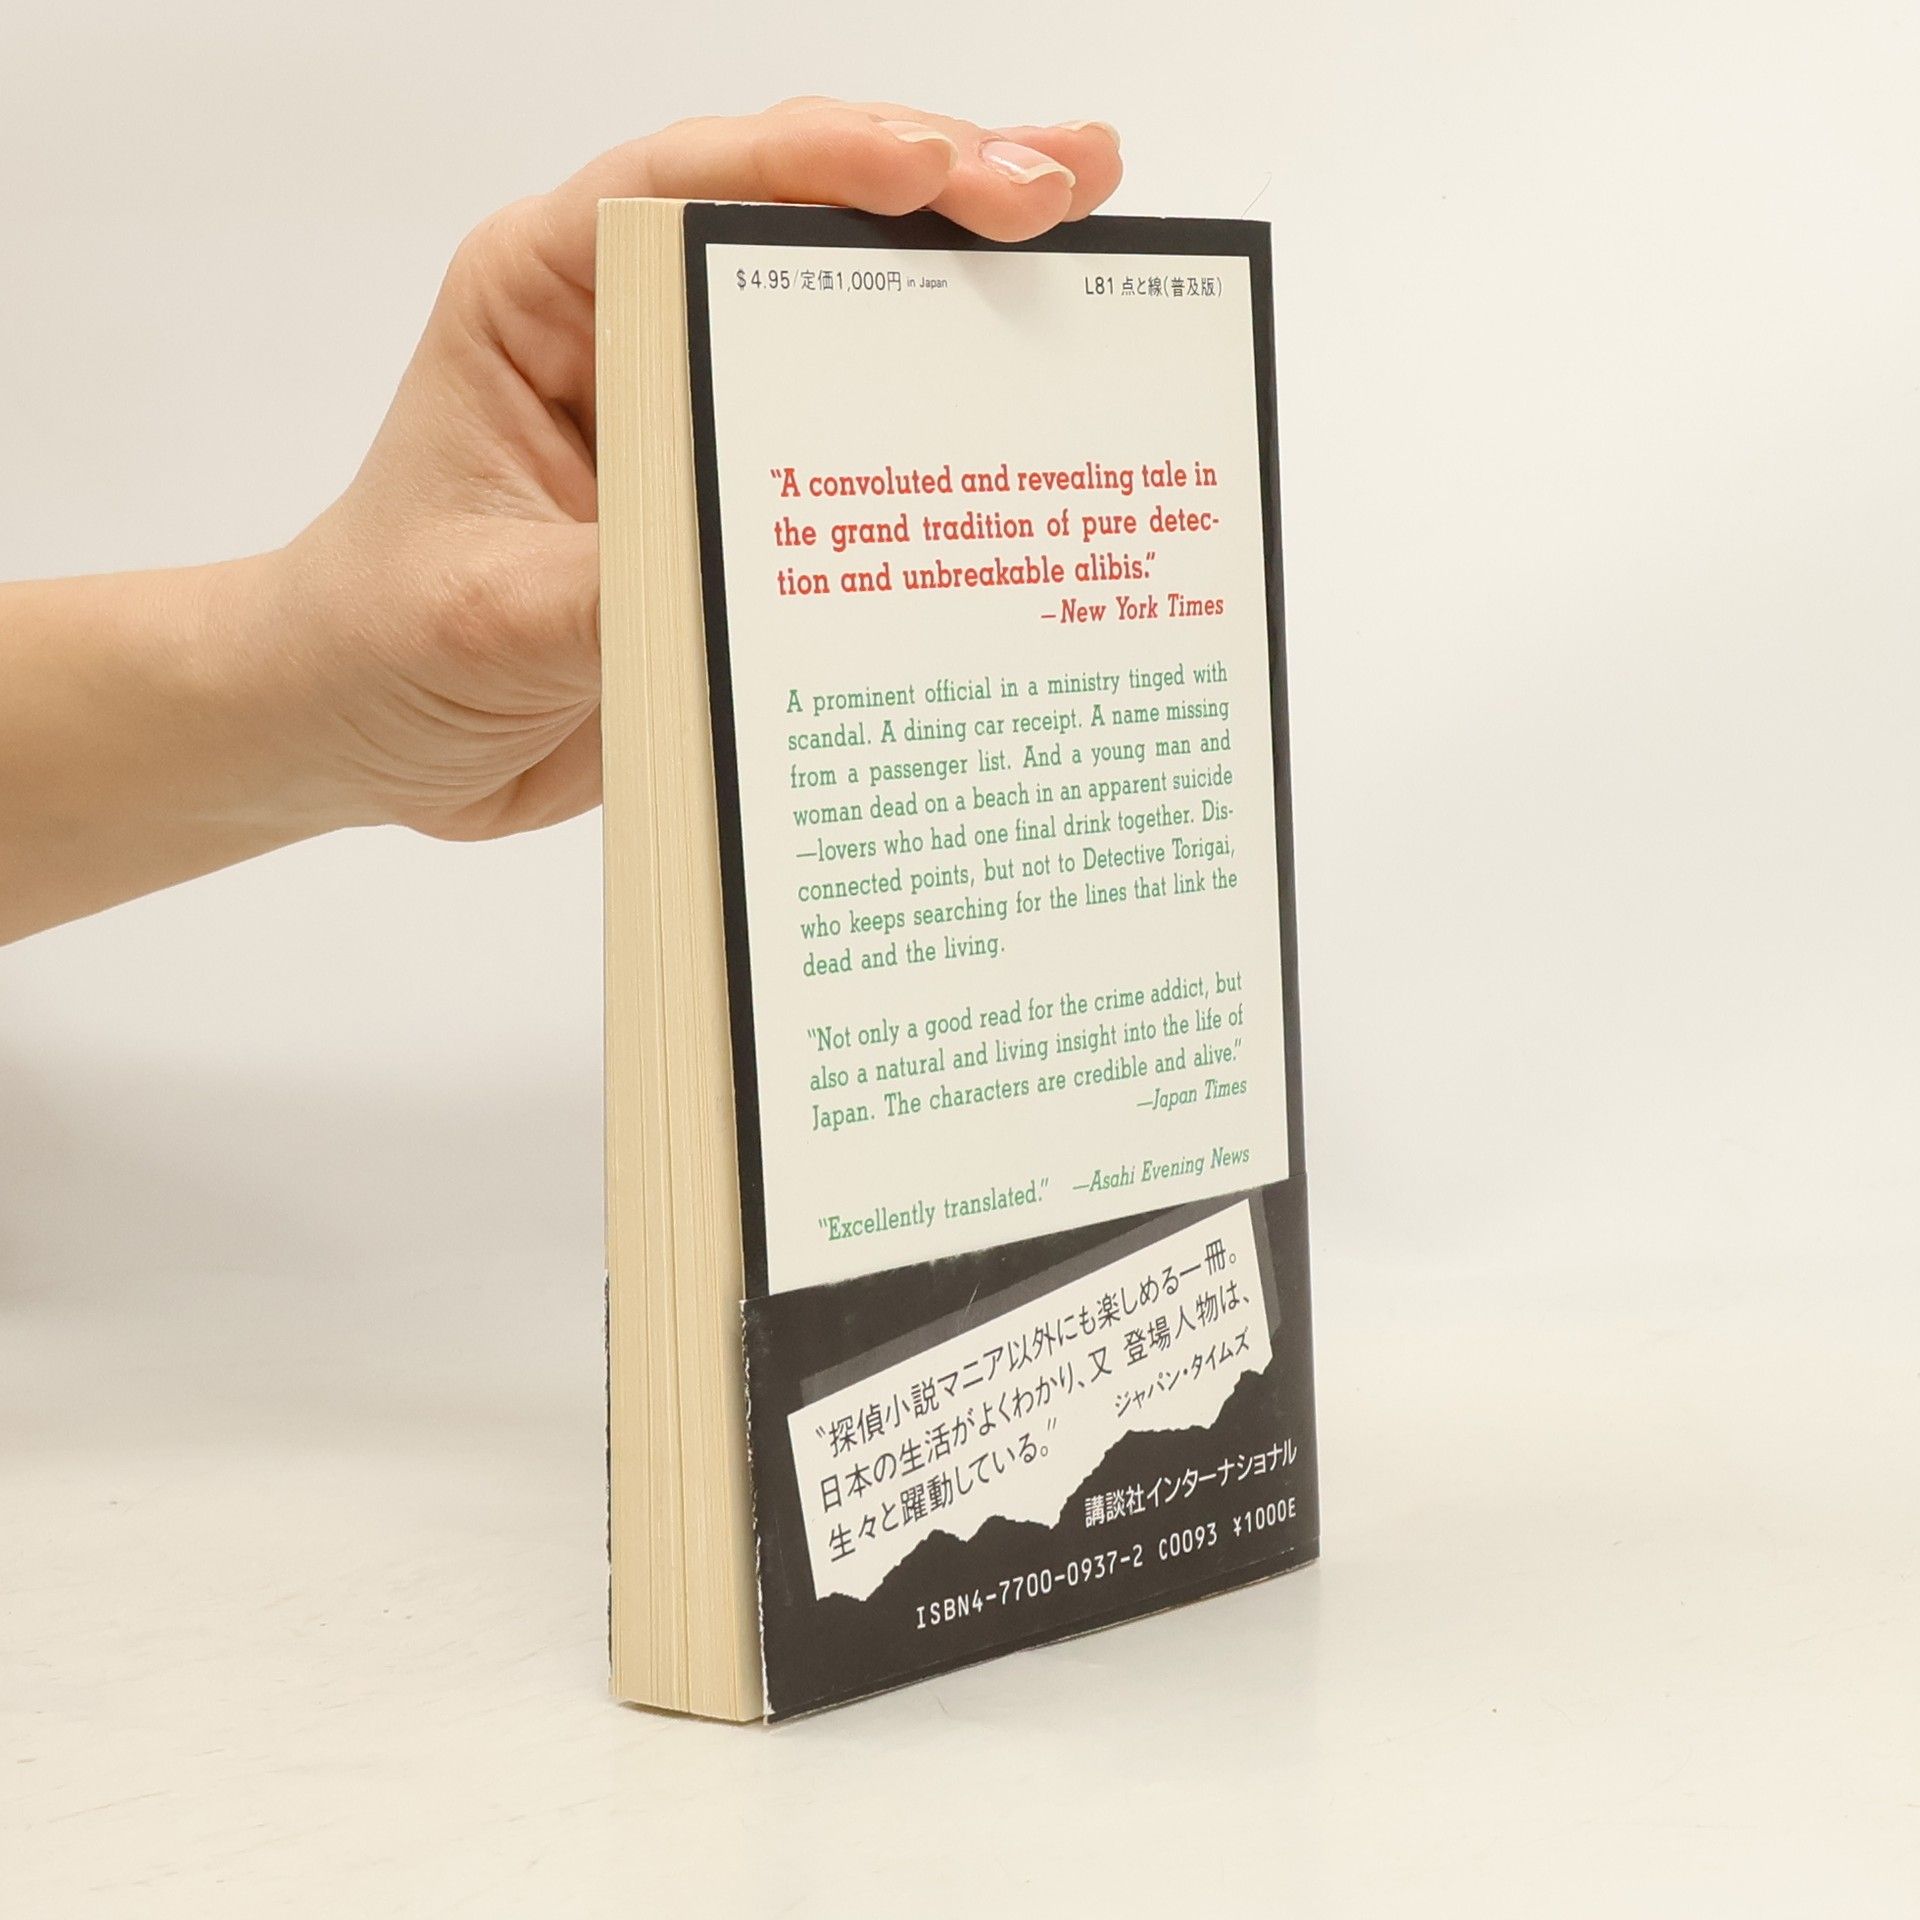 $4.95/定価1,000円 in Japan
L81 点と線(普及版)
“A convoluted and revealing tale in
the grand tradition of pure detec-
tion and unbreakable alibis.”
—New York Times
A prominent official in a ministry tinged with
scandal. A dining car receipt. A name missing
from a passenger list. And a young man and
woman dead on a beach in an apparent suicide
—lovers who had one final drink together. Dis-
connected points, but not to Detective Torigai,
who keeps searching for the lines that link the
dead and the living.
“Not only a good read for the crime addict, but
also a natural and living insight into the life of
Japan. The characters are credible and alive.”
—Japan Times
“Excellently translated.” —Asahi Evening News
〝探偵小説マニア以外にも楽しめる一冊。
日本の生活がよくわかり、又 登場人物は、
生々と躍動している。〞
ジャパン・タイムズ
講談社インターナショナル
ISBN4-7700-0937-2 C0093 ¥1000E